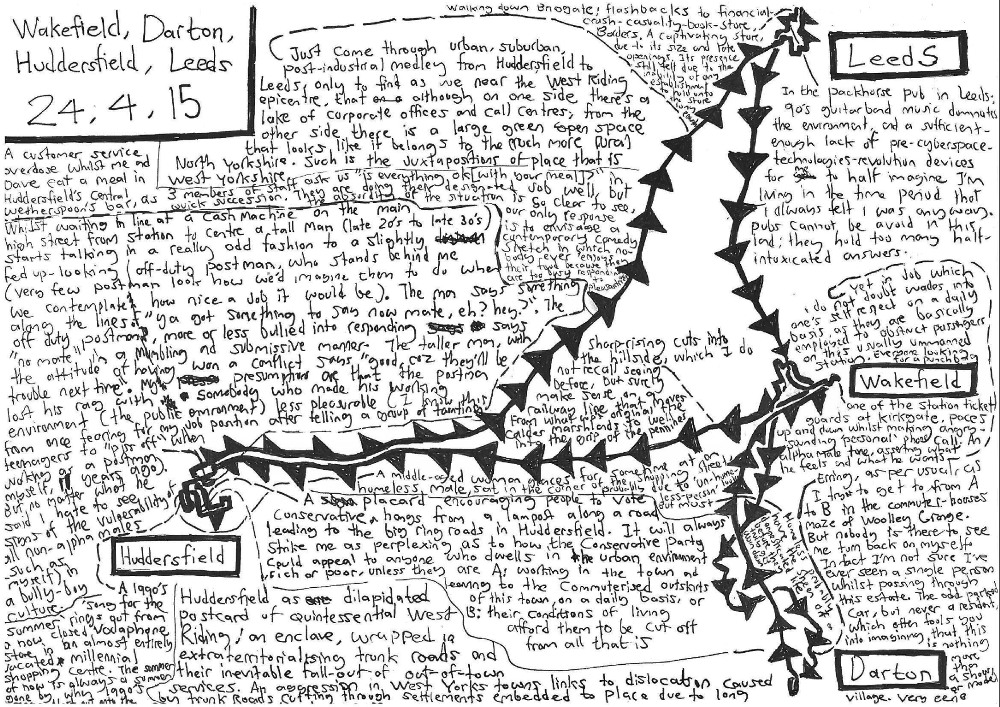 Wakefield, Darton,
Huddersfield, Leeds
24.4.15
Walking down Briggate; flashbacks to financial-
crash-casualty-book-store
Borders. A captivating store,
due to its size and late
openings. Its presence
is still felt due to the
inability of any
establishment
to hold onto
the store
Leeds
In the packhorse pub in Leeds;
90's guitar band music dominates
the environment, and a sufficient-
enough lack of pre-cyberspace-
technologies-revolution devices
for me to half imagine I'm
living in the time period that
I always felt I was anyway.
Pubs cannot be avoid in this
land; they hold too many half-
intoxicated answers.
Just come through urban, suburban,
post-industrial medley from Huddersfield to
Leeds, only to find as we near the West Riding
epicentre, that although on one side there's a
lake of corporate offices and call centres; from the
other side there is a large green open space
that looks like it belongs to the much more rural
North Yorkshire. Such is the juxtapositions of place that is
West Yorkshire
A customer service
overdose whilst me and
Dave eat a meal in
Huddersfield's Central
Wetherspoon's bar, as 3 members of staff ask us "is everything ok [with your meal]?" in
quick sucession. They are doing their designated job well, but
the absurdity of the situation is so clear to see,
our only response
is to envisage a
contemporary comedy
sketch in which no-
body ever enjoys
their food because they
are too busy responding
to pleasantries
Whilst waiting in line at a cash machine on the main
high street from station to centre a tall man (late 20's to late 30's)
starts talking in a really odd fashion to a slightly
fed up-looking off-duty postman, who stands behind me
(very few postman look how we'd imagine them to do when
we contemplate how nice a job it would be). The man says something
along the lines of "ya got something to say now mate, eh? hey?". The
off duty postman, more or less bullied into responding says
"no mate" in a mumbling and submissive manner. The taller man, with
the attitude of having won a conflict says "good, coz they'll be
trouble next time". My presumption that the postman
lost his rag with somebody who made his working
environment (the public environment) less pleasurable (I know this
from once fearing for my job position after telling a group of taunting
teenagers to "piss off" when
working as a postman
myself, years ago).
But no matter what he
said I hate to see
signs of the vulnerability
all non-alpha males
(such as
myself) in
a bully-boy
culture.
sharp-rising cuts into
the hillside, which I do
not recall seeing
before, but surely
make sense on a
railway line that moves
from what was original the
Calder marshlands to
the grip of the pennines
yet in job which
I do not doubt wades into
one's self respect on a daily
basis, as they are basically
employed to obstruct passengers
on this usually unmanned
station. Everyone looking
for a punch bag
Wakefield
one of the station ticket
guards at Kirkgate, paces
up and down whilst making angry
sounding personal phone call. An
alpha male type, asserting what
he feels and what he wants
A middle-aged woman grimaces at
homeless male, sat in the corner
A placard encouraging people to vote
Conservative hangs from a lampost along a road
leading to the big ring roads in Huddersfield. It will always
strike me as perplexing as to how the Conservative Party
could appeal to anyone who dwells in the urban environment
rich or poor, unless they are A: working in the town and
leaving to the commuterised outskirts
of this town, on a daily basis, or
B: their conditions of living
afford them to be cut off
from all that is
Erring, as per usual, as
I try to get to from A
to B in the commuter-houses
maze of Woolley Grange.
But nobody is there to see
me turn back on myself.
In fact I'm not sure I've
ever seen a single person
whilst passing through
this estate. The odd parked
car, but never a resident,
which often fools you
into imagining that this
is nothing
more
than
a show
or model
village. Very eerie
Huddersfield
A 1990's
song for the
summer rings out from
a now closed Vodaphone
store in an almost entirely
vacated millennial
shopping centre. The summer
of now is always a summer
gone by. Why 1990's
Huddersfield as dilapidated
postcard of quintessential West
Riding; an enclave, wrapped in
extraterritorialising trunk roads and
their inevitable fall-out of out-of-town
services. An aggression in West Yorks towns links to dislocation caused
by trunk roads cutting through settlements embedded to place due to long
Darton